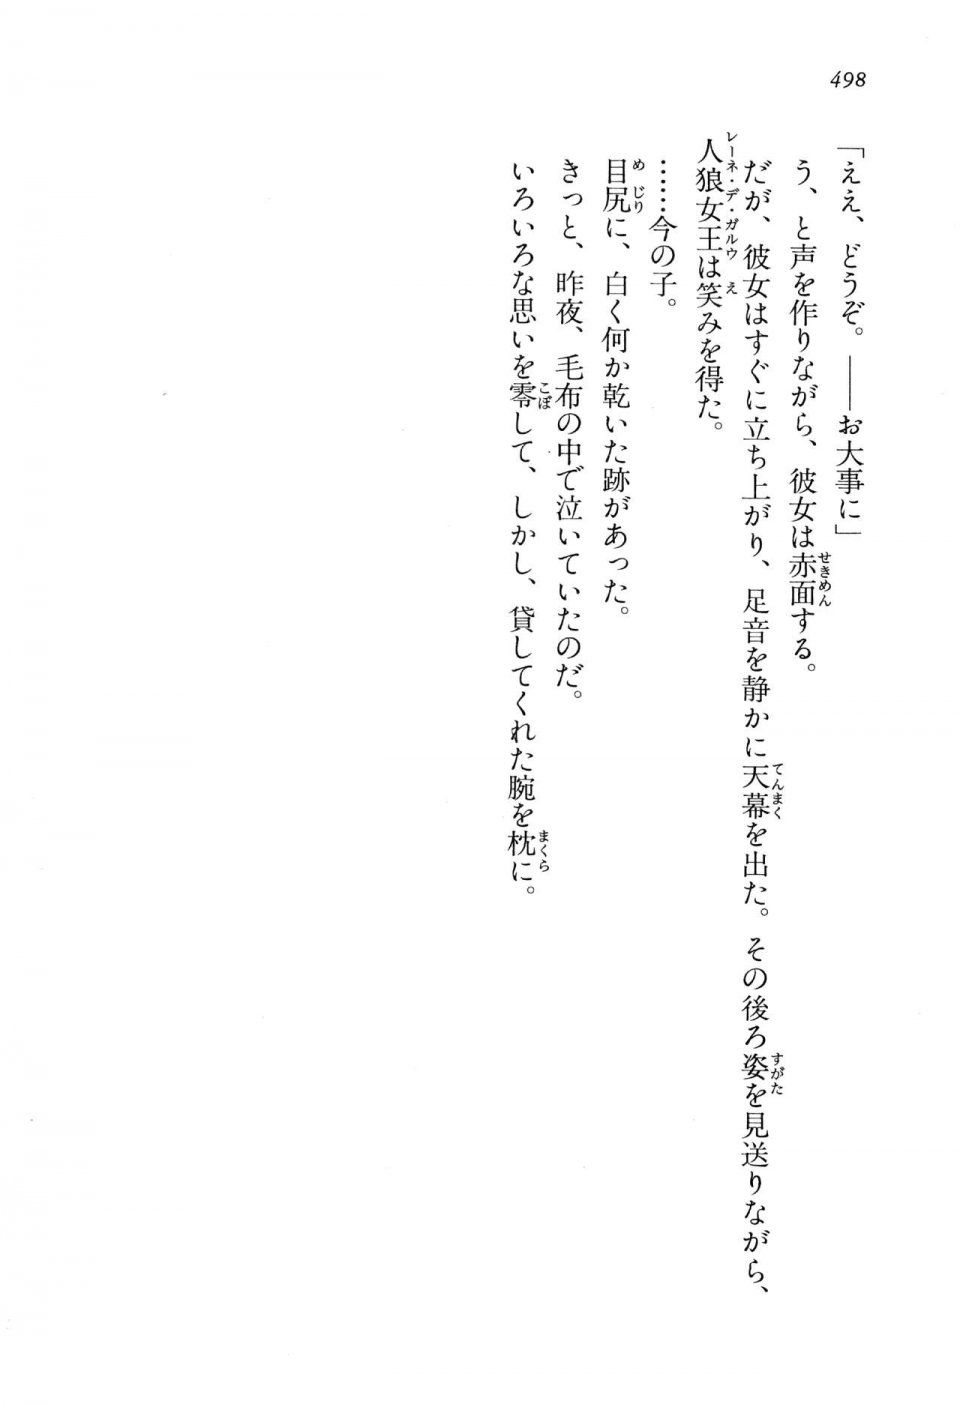 498
「ええ、どうぞ。――お大事に」
う、と声を作りながら、彼女は赤面する。
だが、彼女はすぐに立ち上がり、足音を静かに天幕を出た。その後ろ姿を見送りながら、
人狼女王は笑みを得た。
……今の子。
目尻に、白く何か乾いた跡があった。
きっと、昨夜、毛布の中で泣いていたのだ。
いろいろな思いを零して、しかし、貸してくれた腕を枕に。
せきめん
てんまく
すがた
レーネ・デ・ガルウ
え
めじり
こぼ
まくら